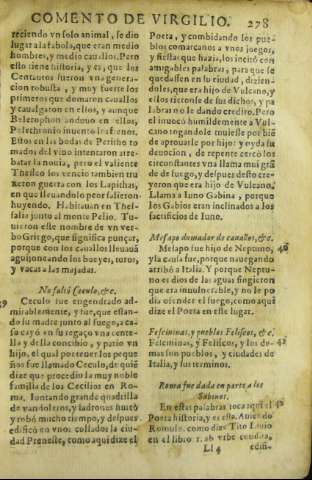 COMENTO DE VIRGILIO. 278
reciendo vn solo animal, se dio
lugar a la fabola, que eran medio
hombres, y medio cauallos. Pero
ello tiene historia, y es, que los
Centauros fueron vna genera-
cion robusta, y muy fuerte los
primeros que domaron cauallos
y caualgaron en ellos, y aunque
Belerophon anduuo en ellos,
Pelethronio inuento los frenos.
Estos en las bodas de Peritho to
mados del vino intentaron arre-
batar la nouia, pero el valiente
Theseo los vencio tambien tru
xeron guerra con los Lapithas,
en que lleuandolo peor salieron
huyendo. Habitauan en Thes-
salia junto al monte Pelio. Tu-
uieron este nombre de vn ver-
bo Griego, que significa punçar,
porque con los cauallos lleuauā
aguijoneando los bueyes, toros,
y vacas a las majadas.
No faltó Ceculo, &c.
Ceculo fue engendrado ad-
mirablemente, y fue, que estan-
do su madre junto al fuego, a ca-
so cayó en su regaço vna cente-
lla y della concibio, y pario vn
hijo, el qual por tener los peque
ños fue llamado Ceculo, de quiē
dize que procedio la muy noble
familia de los Cecilios en Ro-
ma. Iuntando grande quadrilla
de vandoleros, y ladrones hurtó
y robó mucho tiempo, y despues
edificó en vnos collados la ciu-
dad Preneste, como aqui dize el
Poeta, y combidando los pue-
blos comarcanos a vnos juegos,
y fiestas que hazia, los incitó con
amigables palabras, para que se
quedassen en su ciudad, dizien-
doles, que era hijo de Vulcano, y
ellos riendose de sus dichos, y pa
labras no le dando credito. Pero
el inuocó humildemente a Vul-
cano rogandole tuuiesse por biē
de aprouarle por hijo: y oyda su
deuocion, de repente cercó los
circunstantes vna llama muy grā
de de fuego, y despues desto cre-
yeron que era hijo de Vulcano.
Llama a Iuno Gabina, porque
los Gabios eran inclinados a los
sacrificios de Iuno.
Mesapo domador de cauallos, &c.
Mesapo fue hijo de Neptuno, 46
y la causa fue, porque nauegando
arribó a Italia. Y porque Neptu-
no es dios de las aguas fingieron
que era inuulnerable, y no le po
dia ofender el fuego, como aqui
dize el Poeta en este lugar.
Fesceninas, y pueblos Feliscos, &c.
Fesceninas, y Feliscos, y los de-
mas son pueblos, y ciudades de
Italia, y sus terminos.
Roma fue dada en parte a los
Sabinos.
En estas palabras toca aqui el
Poeta historia, y es esta. Auiendo
Romulo, como dize Tito Liuio
en el libro 1. ab vrbe condita,
Ll 4